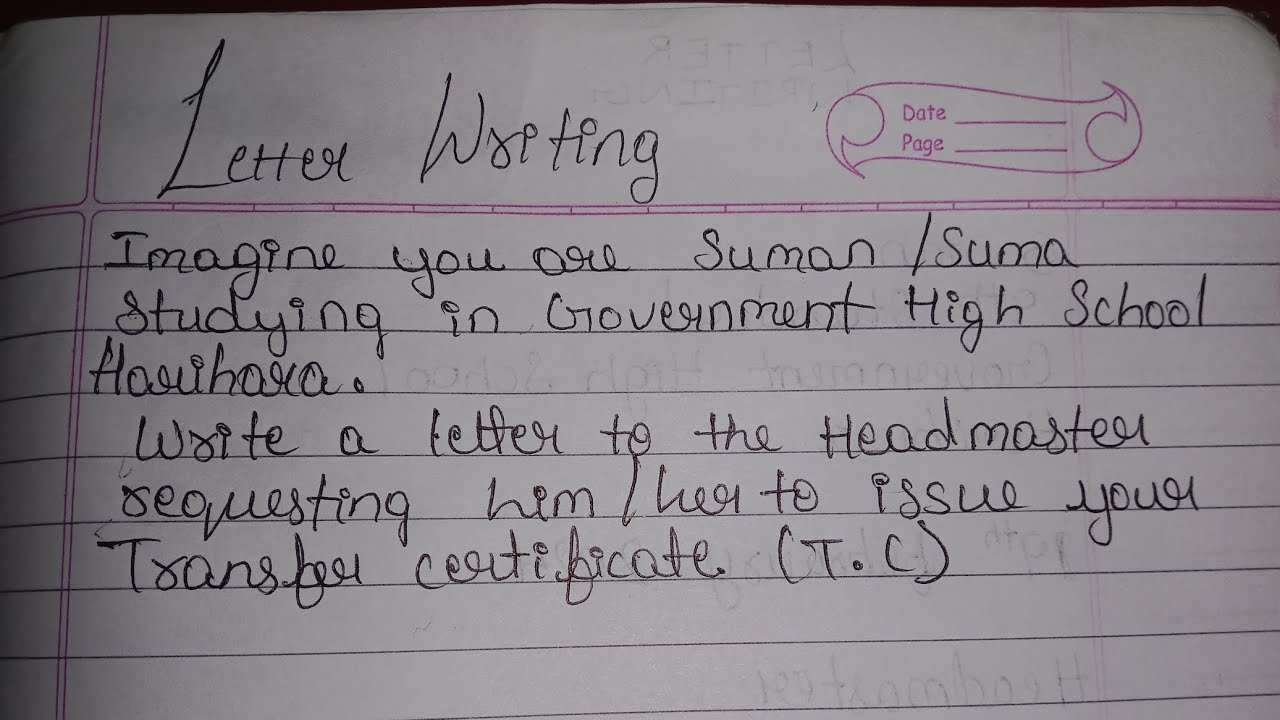 Letter Writing
Date
Page
Imagine you are Suman/Suma
Studying in Government High School
Harihara.
Write a letter to the Headmaster
requesting him/her to issue your
Transfer certificate (T.C)